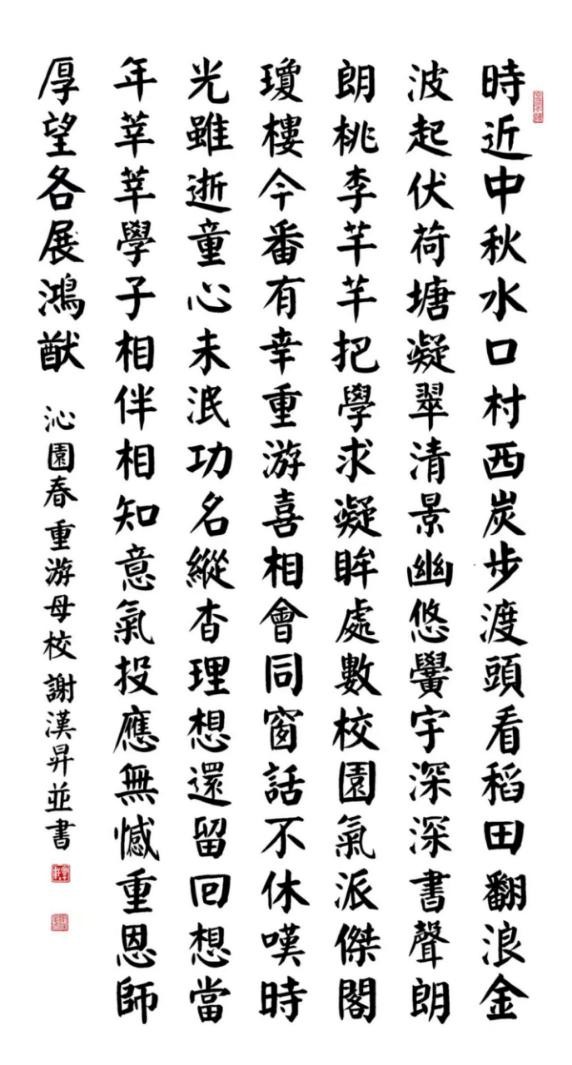 時近中秋水口村西炭步渡頭看稻田翻浪金
波起伏荷塘凝翠清景幽悠黌宇深深書聲朗
朗桃李芊芊把學求凝眸處數校園氣派傑閣
瓊樓今番有幸重游喜相會同窗話不休嘆時
光雖逝童心未泯功名縱杳理想還留回想當
年莘莘學子相伴相知意氣投應無憾重恩師
厚望各展鴻猷
沁園春重游母校謝漢昇並書